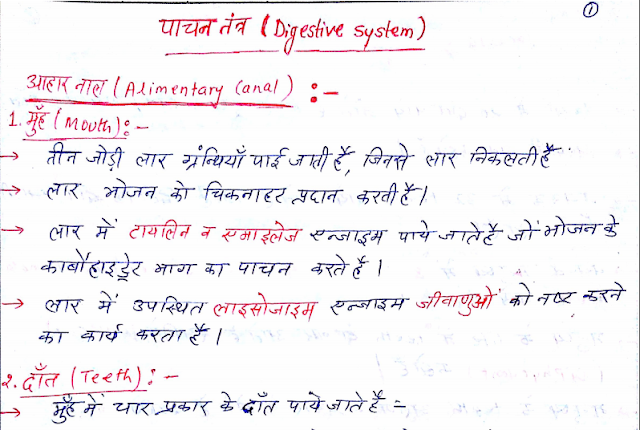 ①
पाचन तंत्र (Digestive system)
आहार नाल (Alimentary Canal) :-
1. मुँह (Mouth):-
→ तीन जोड़ी लार ग्रंथियाँ पाई जाती है, जिनसे लार निकलती है
→ लार भोजन को चिकनाहट प्रदान करती है।
→ लार में टायलिन व एमाइलेज एन्जाइम पाये जाते है जो भोजन के
कार्बोहाइड्रेट भाग का पाचन करते है।
→ लार में उपस्थित लाइसोजाइम एन्जाइम जीवाणुओं को नष्ट करने
का कार्य करता है।
2. दाँत (Teeth):-
→ मुँह में चार प्रकार के दाँत पाये जाते है -